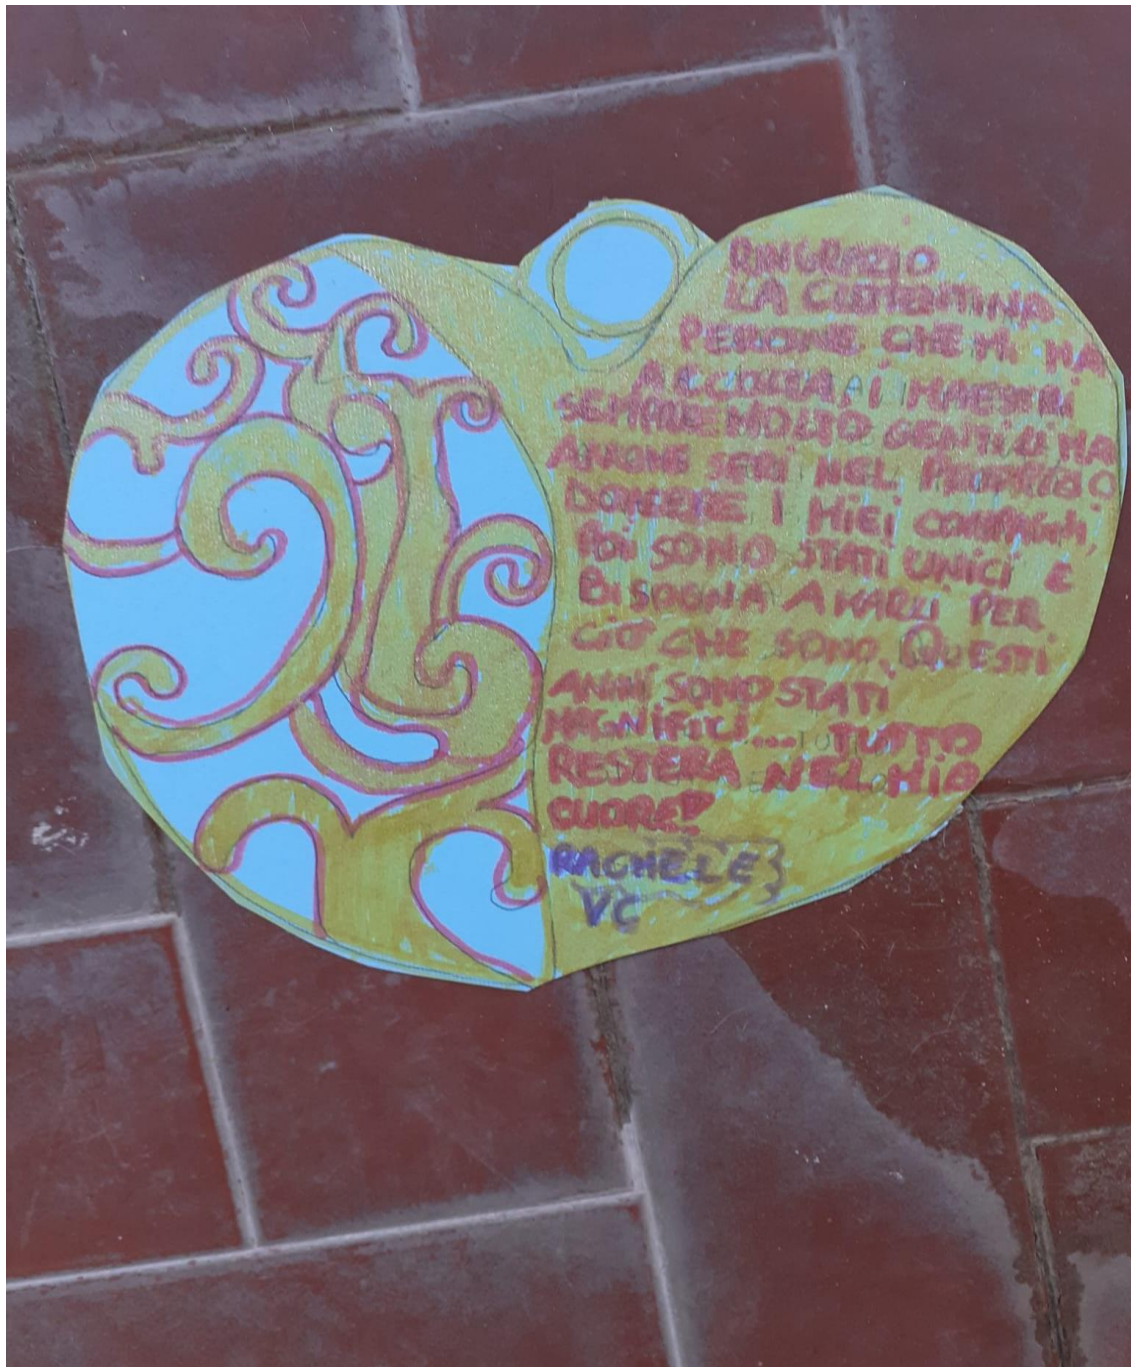 RINGRAZIO
LA CLEMENTINA
PERCHÉ CHE MI HA
ACCOLTA, I MAESTRI
SEMPRE MOLTO GENTILI MA
ANCHE SERI NEL PROPRIO
DOVERE I MIEI COMPAGNI,
POI SONO STATI UNICI E
BISOGNA AMARLI PER
CIÒ CHE SONO. QUESTI
ANNI SONO STATI
MAGNIFICI... TUTTO
RESTERA NEL MIO
CUORE!
RACHELE
VC